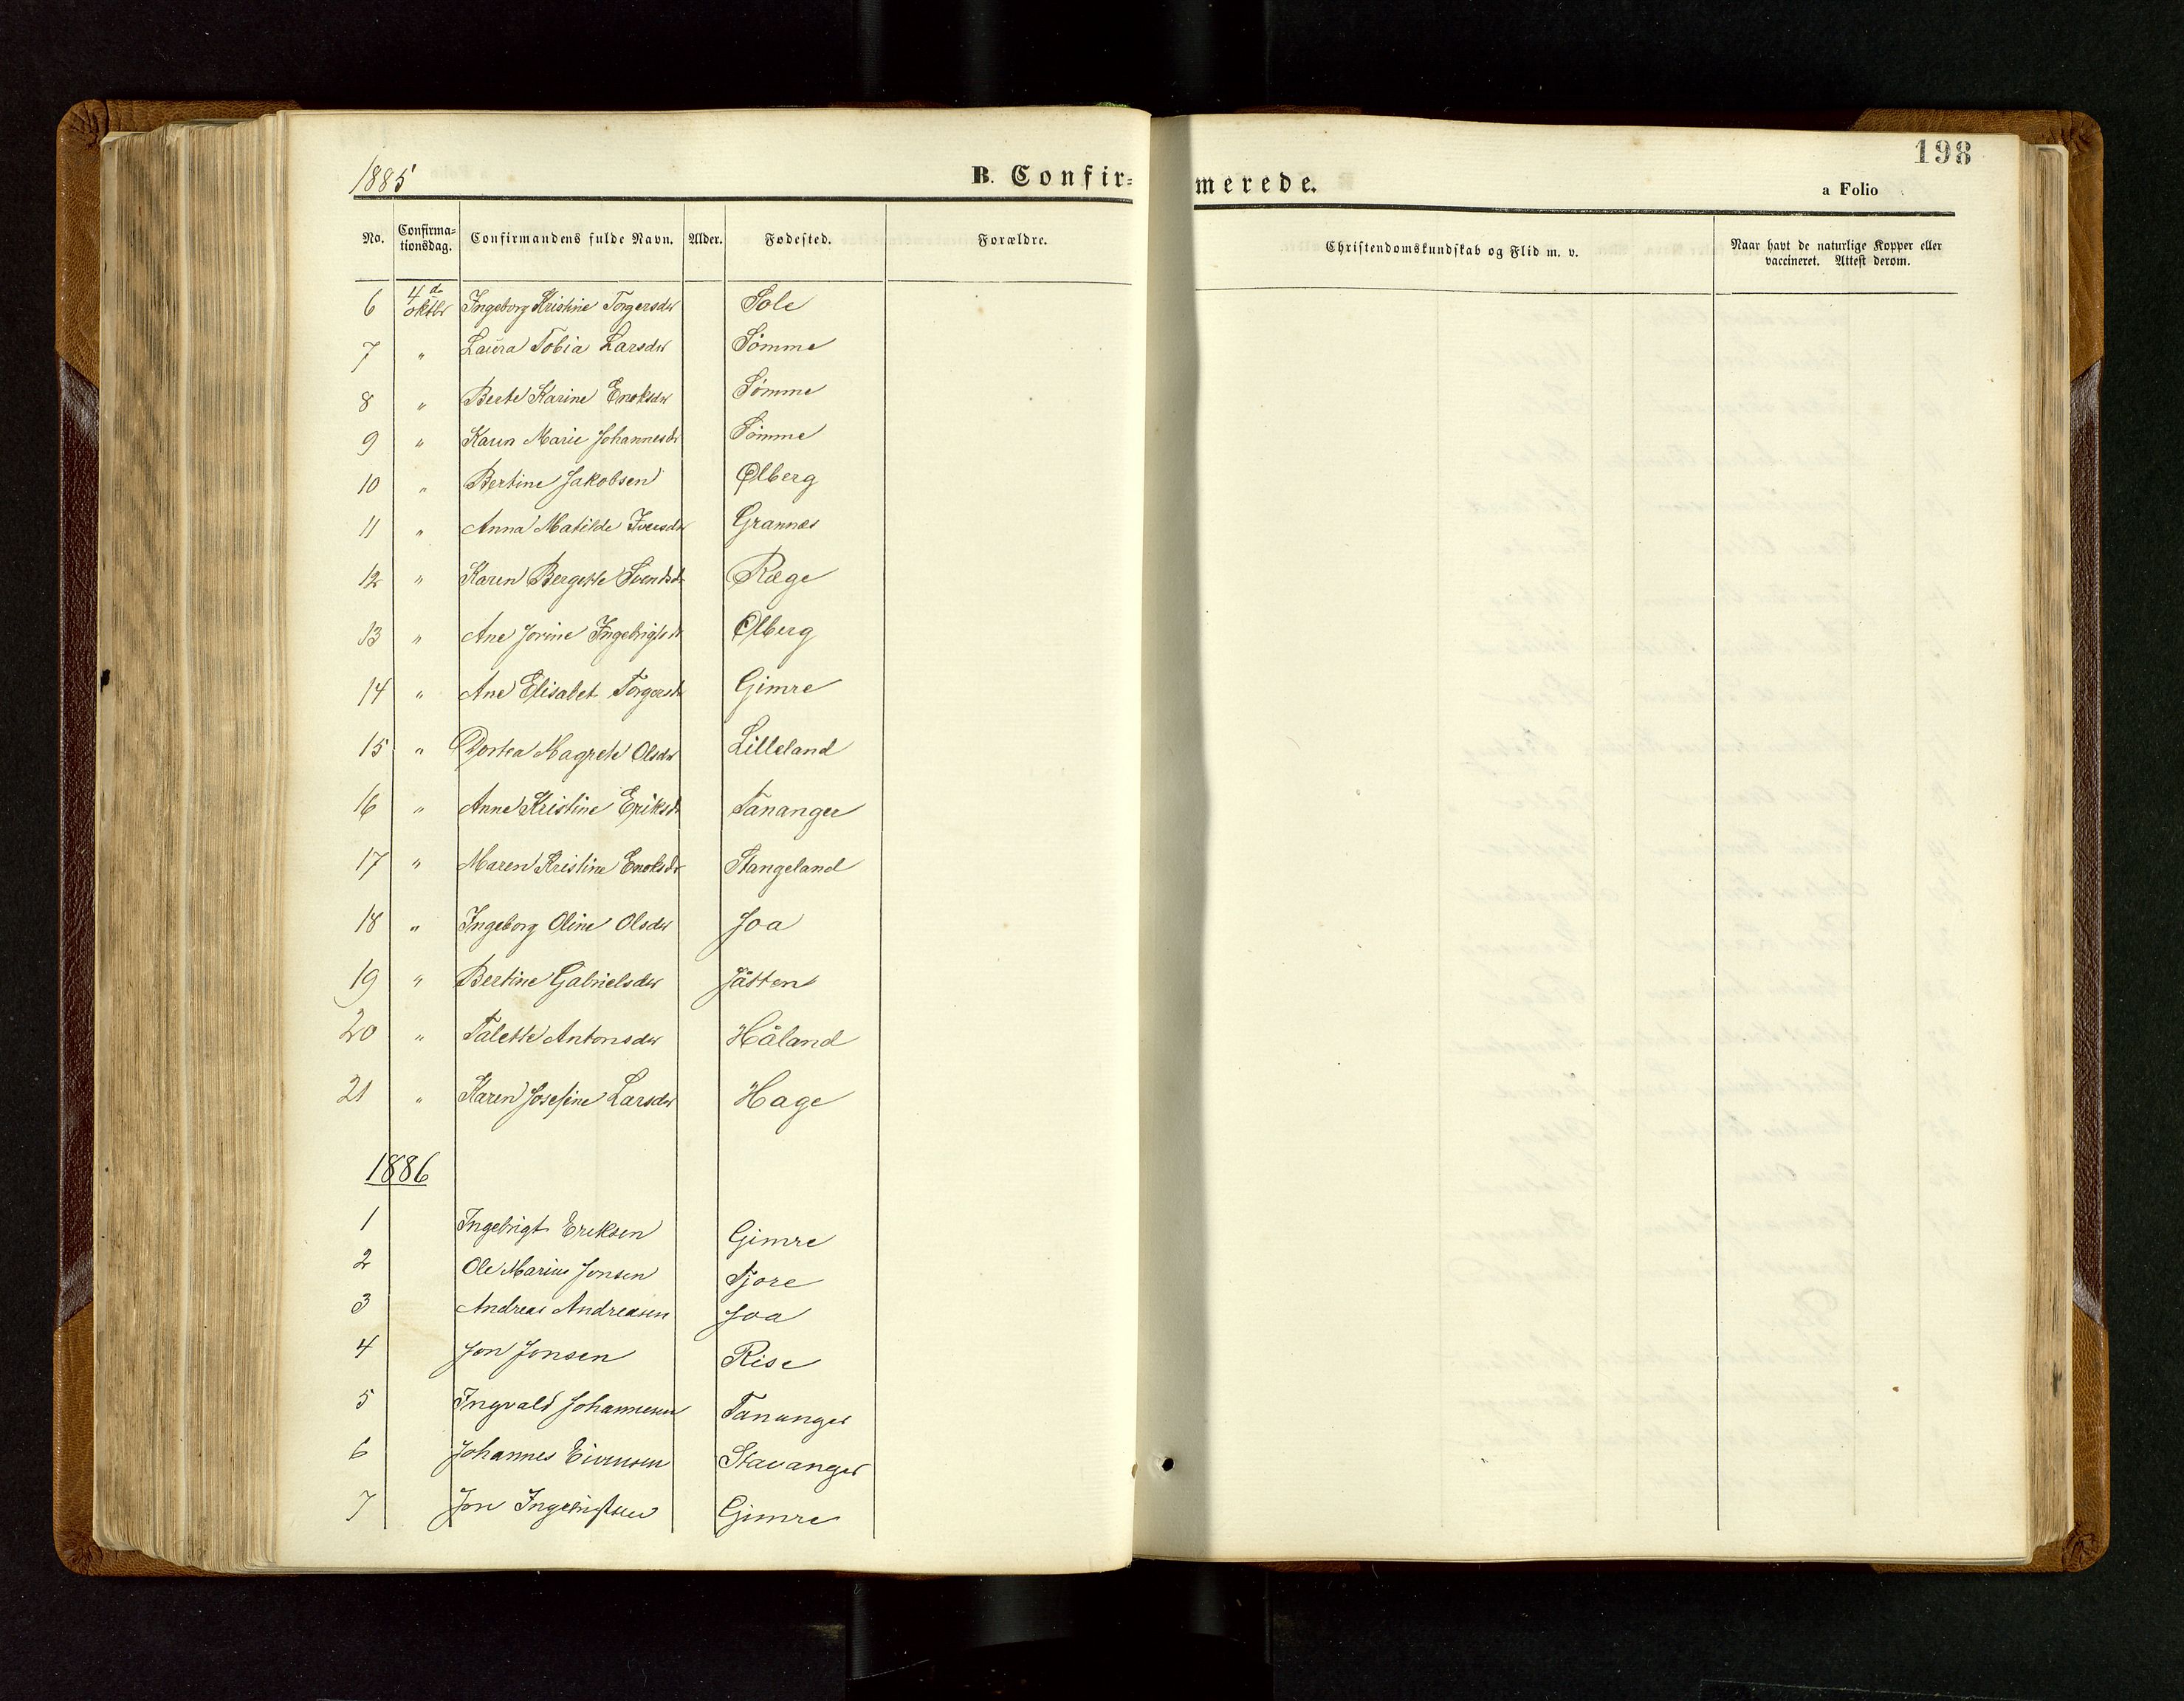 198
1885
B. Confir=
merede.
a Folio
No. Confirma=tionsdag. Confirmandens fulde Navn. Alder. Fødested. Forældre. Christendomskundskab og Flid m. v. Naar havt de naturlige Kopper eller vaccineret. Attest derom.
6 4de oktbr Ingeborg Kristine Torgersdtr Sole
7 " Laura Tobia Larsdtr Sömme
8 " Berte Karine Enoksdtr Sömme
9 " Karen Marie Johannesdr Sömme
10 " Bertine Jakobsen Ølberg
11 " Anna Matilde Iversdtr Grannes
12 " Karen Bergette Svendsdr Ræge
13 " Ane Jorine Ingebrigtsdr Ølberg
14 " Ane Elisabet Torgersdr Gimre
15 " Dortea Magrete Olsdtr Lilleland
16 " Anne Kristine Eriksdr Tananger
17 " Maren Kristine Enoksdr Stangeland
18 " Ingeborg Oline Olsdtr Joa
19 " Bertine Gabrielsdtr Jåtten
20 " Talette Antonsdtr Håland
21 " Karen Josefine Larsdtr Hage
1886
1 Ingebrigt Eriksen Gimre
2 Ole Marius Jonsen Tjore
3 Andreas Andreasen Joa
4 Jon Jonsen Rise
5 Ingvald Johannesen Tananger
6 Johannes Eivensen Stavanger
7 Jon Ingebrigtsen Gimre